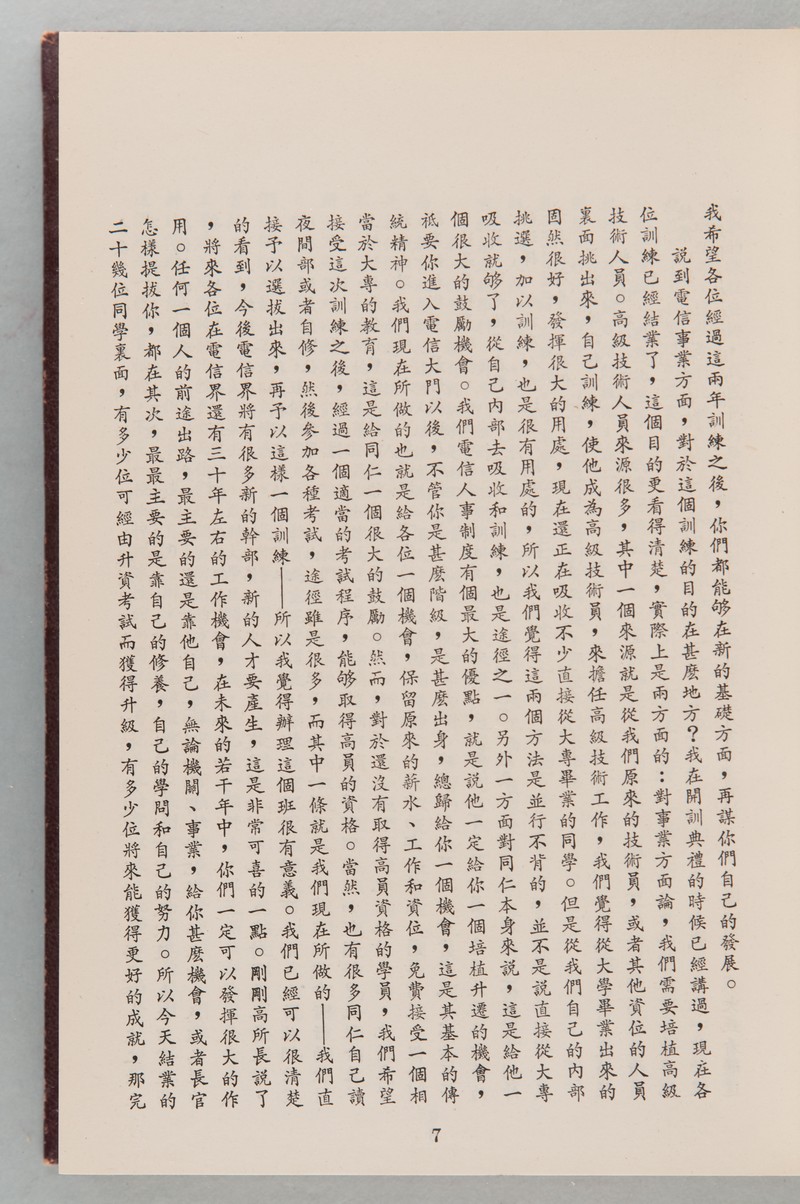 我希望各位經過這兩年訓練之後，你們都能够在新的基礎方面，再謀你們自己的發展。
說到電信事業方面，對於這個訓練的目的在甚麽地方？我在開訓典禮的時候已經講過，現在各
位訓練已經結業了，這個目的更看得清楚，實際上是兩方面的：對事業方面論，我們需要培植高級
技術人員。高級技術人員來源很多，其中一個來源就是從我們原來的技術員，或者其他資位的人員
裏面挑出來，自己訓練，使他成為高級技術員，來擔任高級技術工作，我們覺得從大學畢業出來的
固然很好，發揮很大的用處，現在還正在吸收不少直接從大專畢業的同學。但是從我們自己的內部
挑選，加以訓練，也是很有用處的，所以我們覺得這兩個方法是並行不背的，並不是說直接從大專
吸收就够了，從自己內部去吸收和訓練，也是途徑之一。另外一方面對同仁本身來說，這是給他一
個很大的鼓勵機會。我們電信人事制度有個最大的優點，就是說他一定給你一個培植升遷的機會，
祗要你進入電信大門以後，不管你是甚麽階級，是甚麽出身，總歸給你一個機會，這是其基本的傳
統精神。我們現在所做的也就是給各位一個機會，保留原來的薪水、工作和資位，免費接受一個相
當於大專的教育，這是給同仁一個很大的鼓勵。然而，對於還沒有取得高員資格的學員，我們希望
接受這次訓練之後，經過一個適當的考試程序，能够取得高員的資格。當然，也有很多同仁自己讀
夜間部或者自修，然後參加各種考試，途徑雖是很多，而其中一條就是我們現在所做的——我們直
接予以選拔出來，再予以這樣一個訓練——所以我覺得辦理這個班很有意義。我們已經可以很清楚
的看到，今後電信界將有很多新的幹部，新的人才要產生，這是非常可喜的一點。剛剛高所長說了
，將來各位在電信界還有三十年左右的工作機會，在未來的若干年中，你們一定可以發揮很大的作
用。任何一個人的前途出路，最主要的還是靠他自己，無論機關、事業，給你甚麽機會，或者長官
怎樣提拔你，都在其次，最最主要的是靠自己的修養，自己的學問和自己的努力。所以今天結業的
二十幾位同學裏面，有多少位可經由升資考試而獲得升級，有多少位將來能獲得更好的成就，那完
7